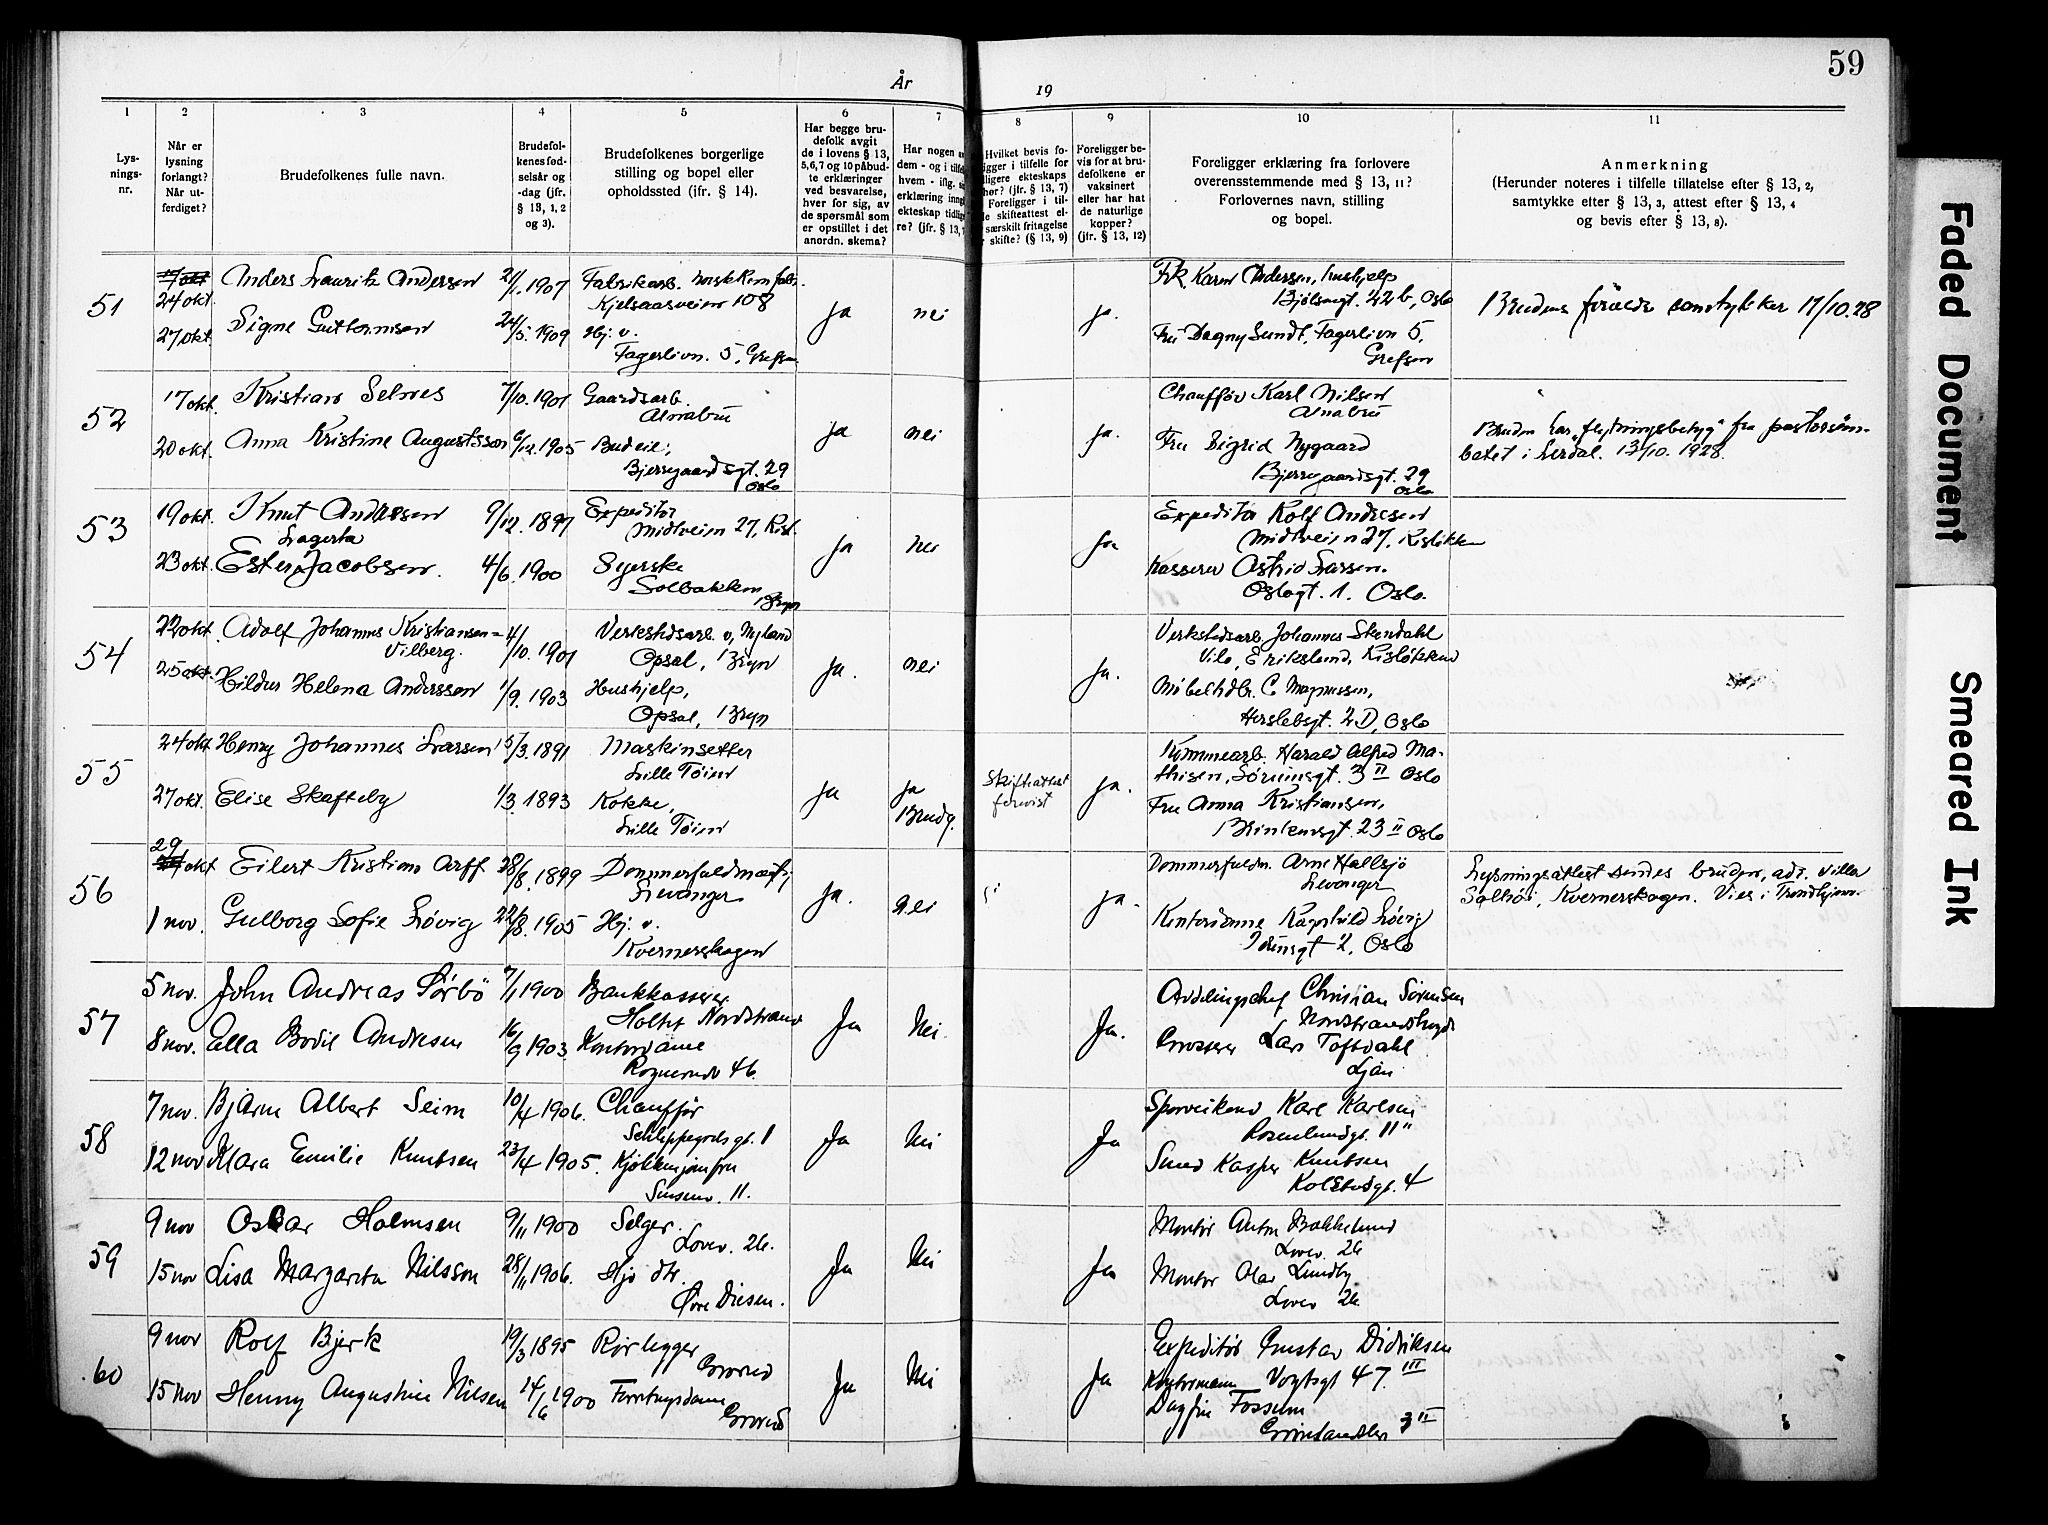 59
År
19
1
2
3
4
5
6
7
8
9
10
11
Lys-
nings-
nr.
Når er
lysning
forlangt?
Når ut-
ferdiget?
Brudefolkenes fulle navn.
Brudefol-
kenes fød-
selsår og
-dag (jfr.
§ 13, 1, 2
og 3).
Brudefolkenes borgerlige
stilling og bopel eller
opholdssted (ifr. § 14).
Har begge bru-
defolk avgit
de i lovens § 13,
5,6,7 og 10 påbud-
te erklæringer
ved besvarelse,
hver for sig, av
de spørsmål som
er opstillet i det
anordn. skema?
Har nogen
dem - og i tilfe
hvem - iflg.
erklæring inng
ekteskap tidlig
re? (jfr. § 13,
Hvilket bevis fo-
ligger i tilfelle for
ligere ekteskaps
hør? (jfr. § 13, 7)
Foreligger i til-
le skifteattest el-
særskilt fritagelse
skifte? (§ 13, 9)
Foreligger be-
vis for at bru-
defolkene er
vaksinert
eller har hat
de naturlige
kopper?
(jfr. § 13, 12)
Foreligger erklæring fra forlovere
overensstemmende med § 13, 11?
Forlovernes navn, stilling
og bopel.
Anmerkning
(Herunder noteres i tilfelle tillatelse efter § 13, 2,
samtykke efter § 13, 3, attest efter § 13, 4
og bevis efter § 13, 8).
51
24 okt
27 okt.
Anders Lauritz Andersen
2/1.1907
Signe Guttormsen
24/5.1909
Fabrikarb. norsk
Kjelsaasveien 108
Hj. v.
Fagerlivn. 5, Grefsen
ja
nei
ja.
Frk. Karen Andersen, hushjelp
Bjølsengt. 22 b, Oslo
Fru Dagny Sundt, Fagerlivn 5,
Grefsen
Brudens foreldre samtykker 17/10.28
52
17 okt.
20 okt.
Kristian Selnes
7/10.1901
Anna Kristine Augustsson
6/12.1905
Gaardsarb.
Alnabru
Budeie;
Bjerregaardsgt. 29
Oslo
ja
nei
ja.
Chauffør Karl Nilsen
Alnabru
Fru Sigrid Nygaard
Bjerregaardsgt. 29
Oslo
Bruden har "flytningsbetyg" fra pastorsäm-
betet i Lerdal. 13/10. 1928.
53
19 okt.
23 okt.
Knut Andresen
9/12.1897
Lagerta
Ester Jacobsen.
4/6.1900
Expeditør
Midtveien 27,
Syerske
Solbakken
Bryn
ja
nei
ja
Expeditør Rolf Andresen
Midtveien 27, Kisløkken
Kasserer Astrid Larsen.
Oslogt. 1. Oslo.
54
22 okt
25 okt.
Adolf Johannes Kristiansen-
Vilberg.
4/10.1901
Hildur Helena Andersson
1/9.1903
Verkstedsarb. v, Nyland
Opsal, Bryn
Hushjelp,
Opsal, Bryn
ja.
nei
ja.
Verkstedsarb. Johannes Stendahl
Vilo, Erikslund, Kisløkken
Møbelhdlr. C. Magnussen,
Herslebsgt. 2 D, Oslo
55
24 okt
27 okt.
Henry Johannes Larsen
15/3.1891
Elise Skafteby
1/3.1893
Maskinsetter
Lille Tøien
Kokke,
Lille Tøien
ja
ja
Brudg.
Skifteattest
forevist
ja.
Harald Alfred Ma-
thisen, Sørumsgt. 3 II Oslo
Fru Anna Kristiansen,
Brinkensgt. 23 II Oslo
56
29 okt
1 nov.
Eilert Kristian Arff
28/8.1899
Gulborg Sofie Løvig
22/8.1905
Dommerfuldmægtig
Levanger
Hj. v.
Kvernerskogen
ja.
nei
ja.
Dommerfuldm. Arne Hallsjø
Levanger
Kontordame Ragnhild Løvig
Idunsgt 2, Oslo
Lysningsattest sendes bruden, adr. villa
Solhøi, Kvernerskogen. Vies i Trondhjem.
57
5 nov.
8 nov.
John Andreas Sørbö
7/1 1900
Ella Bodil Andresen
16/9 1903
Bankkasserer
Holtet Nordstrand
Kontordame
46.
Ja
Nei
Ja.
Avdelingschef Christian Sörensen
Nordstrandshøgd
Grosserer Lars Toftdahl
Ljan
58
7 nov.
12 nov
Bjarne Albert Seim
10/4 1906.
Klara Emilie Knutsen
23/4 1905.
Chauffør
Schleppegrelsgt. 1
Kjøkkenjomfru
Sinsenv. 11.
Ja
Nei
Ja
Sporveiskond Karl Karlsen
Rosenlundgt. 11"
Smed Kasper Knutsen
Kolstadgt. 4
59
9 nov
15 nov
Oskar Holmsen
9/11 1900
Lisa Margareta Nilsson
28/11 1906.
Selger.
Lovev. 26.
Hjv dtr.
Øvre Disen.
Ja
Nei
Ja
Montør Anton Bakkelund
Lovev. 26
Montør Olav Lundby
Lovev 26
60
9 nov
15 nov
Rolf Bjerk
19/3 1895
Henny Augustine Nilsen
14/6 1900
Rørlegger
Grorud
Forretningsdame
Grorud
Ja
Nei
Ja
Expeditør Gustav Didriksen
Kontormann Vogtsgt 47. III
Dagfin Fossum
3 II
Faded Document
Smeared Ink